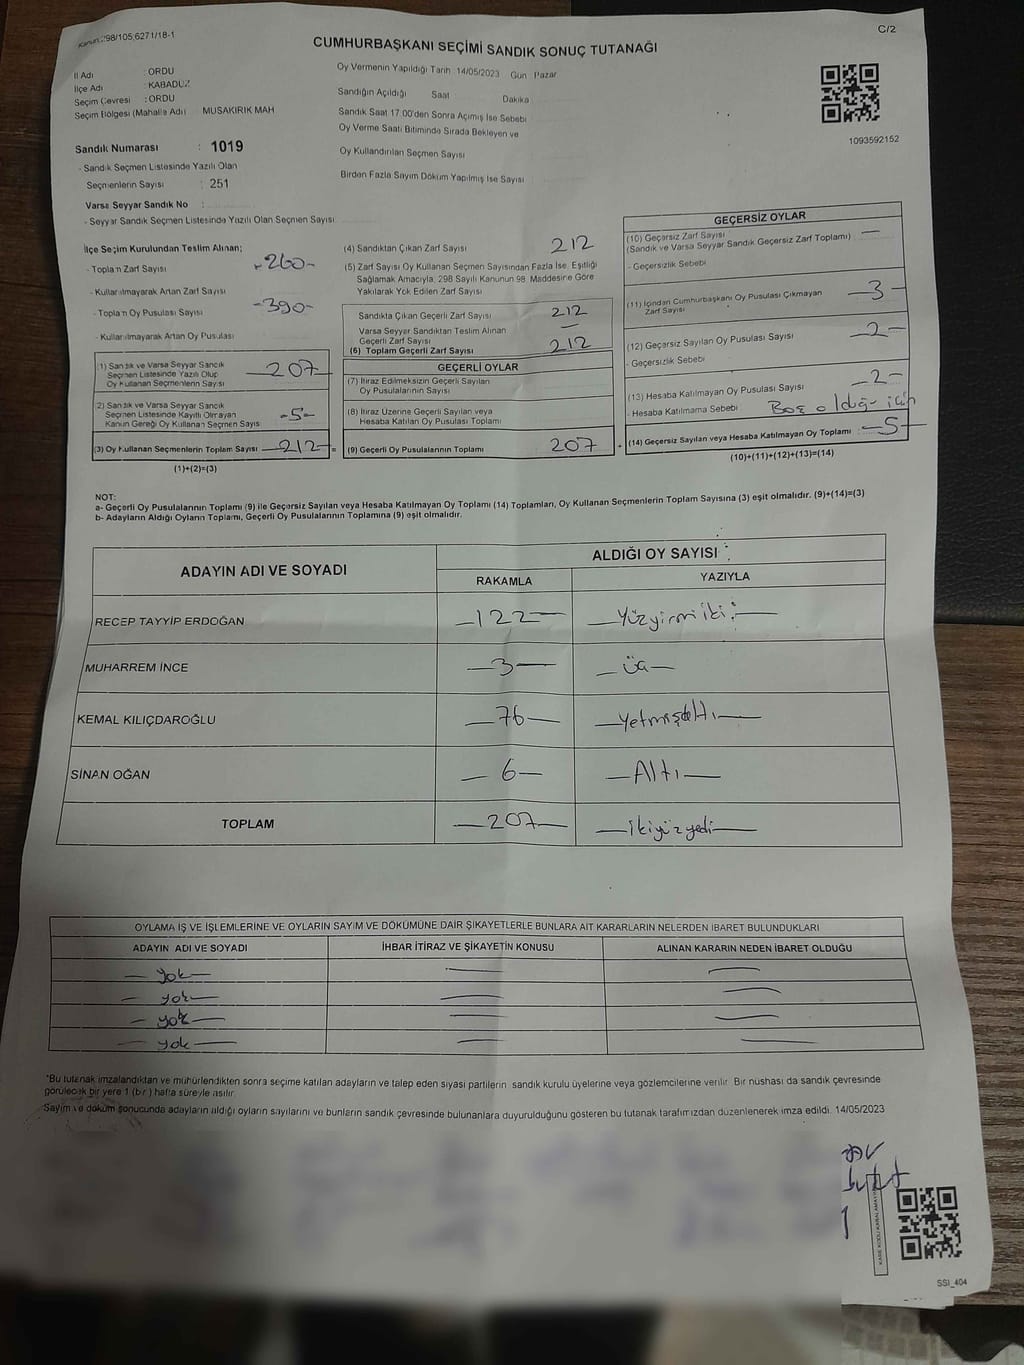 Kanun : 298/105,6271/18-1
C/2
CUMHURBAŞKANI SEÇİMİ SANDIK SONUÇ TUTANAĞI
İl Adı : ORDU
İlçe Adı : KABADÜZ
Seçim Çevresi : ORDU
Seçim Bölgesi (Mahalle Adı) MUSAKIRIK MAH
Oy Vermenin Yapıldığı Tarih :14/05/2023 Gün : Pazar
Sandığın Açıldığı Saat Dakika
Sandık Saat 17.00'den Sonra Açılmış İse Sebebi
Oy Verme Saati Bitiminde Sırada Bekleyen ve
Oy Kullandırılan Seçmen Sayısı
Birden Fazla Sayım Döküm Yapılmış İse Sayısı
1093592152
Sandık Numarası : 1019
- Sandık Seçmen Listesinde Yazılı Olan
Seçmenlerin Sayısı : 251
Varsa Seyyar Sandık No :
- Seyyar Sandık Seçmen Listesinde Yazılı Olan Seçmen Sayısı
İlçe Seçim Kurulundan Teslim Alınan;
- Toplam Zarf Sayısı -260-
- Kullanılmayarak Artan Zarf Sayısı
- Toplam Oy Pusulası Sayısı -390-
- Kullanılmayarak Artan Oy Pusulası
(1) Sandık ve Varsa Seyyar Sandık
Seçmen Listesinde Yazılı Olup
Oy Kullanan Seçmenlerin Sayısı 207
(2) Sandık ve Varsa Seyyar Sandık
Seçmen Listesinde Kayıtlı Olmayan
Kanun Gereği Oy Kullanan Seçmen Sayısı -5-
(3) Oy Kullanan Seçmenlerin Toplam Sayısı -212-
(1)+(2)=(3)
(4) Sandıktan Çıkan Zarf Sayısı 212
(5) Zarf Sayısı Oy Kullanan Seçmen Sayısından Fazla İse, Eşitliği
Sağlamak Amacıyla, 298 Sayılı Kanunun 98. Maddesine Göre
Yakılarak Yok Edilen Zarf Sayısı
Sandıkta Çıkan Geçerli Zarf Sayısı 212
Varsa Seyyar Sandıktan Teslim Alınan
Geçerli Zarf Sayısı —
(6) Toplam Geçerli Zarf Sayısı 212
GEÇERLİ OYLAR
(7) İtiraz Edilmeksizin Geçerli Sayılan
Oy Pusulalarının Sayısı
(8) İtiraz Üzerine Geçerli Sayılan veya
Hesaba Katılan Oy Pusulası Toplamı
(9) Geçerli Oy Pusulalarının Toplamı 207
GEÇERSİZ OYLAR
(10) Geçersiz Zarf Sayısı
(Sandık ve Varsa Seyyar Sandık Geçersiz Zarf Toplamı) —
- Geçersizlik Sebebi
(11) İçindan Cumhurbaşkanı Oy Pusulası Çıkmayan
Zarf Sayısı -3-
(12) Geçersiz Sayılan Oy Pusulası Sayısı -2-
- Geçersizlik Sebebi
(13) Hesaba Katılmayan Oy Pusulası Sayısı -2-
- Hesaba Katılmama Sebebi Boş olduğu için
(14) Geçersiz Sayılan veya Hesaba Katılmayan Oy Toplamı -5-
(10)+(11)+(12)+(13)=(14)
NOT:
a- Geçerli Oy Pusulalarının Toplamı (9) ile Geçersiz Sayılan veya Hesaba Katılmayan Oy Toplamı (14) Toplamları, Oy Kullanan Seçmenlerin Toplam Sayısına (3) eşit olmalıdır. (9)+(14)=(3)
b- Adayların Aldığı Oyların Toplamı, Geçerli Oy Pusulalarının Toplamına (9) eşit olmalıdır.
ADAYIN ADI VE SOYADI
ALDIĞI OY SAYISI
RAKAMLA YAZIYLA
RECEP TAYYİP ERDOĞAN -122- -Yüzyirmiiki-
MUHARREM İNCE -3- -üç-
KEMAL KILIÇDAROĞLU -76- -Yetmişaltı-
SİNAN OĞAN -6- -Altı-
TOPLAM -207- -ikiyüzyedi-
OYLAMA İŞ VE İŞLEMLERİNE VE OYLARIN SAYIM VE DÖKÜMÜNE DAİR ŞİKAYETLERLE BUNLARA AİT KARARLARIN NELERDEN İBARET BULUNDUKLARI
ADAYIN ADI VE SOYADI İHBAR İTİRAZ VE ŞİKAYETİN KONUSU ALINAN KARARIN NEDEN İBARET OLDUĞU
-yok- — —
-yok- — —
-yok- — —
-yok- — —
*Bu tutanak imzalandıktan ve mühürlendikten sonra seçime katılan adayların ve talep eden siyasi partilerin sandık kurulu üyelerine veya gözlemcilerine verilir. Bir nüshası da sandık çevresinde
görülecek bir yere 1 (bir) hafta süreyle asılır.
Sayım ve döküm sonucunda adayların aldığı oyların sayılarını ve bunların sandık çevresinde bulunanlara duyurulduğunu gösteren bu tutanak tarafımızdan düzenlenerek imza edildi. 14/05/2023
SSI_404